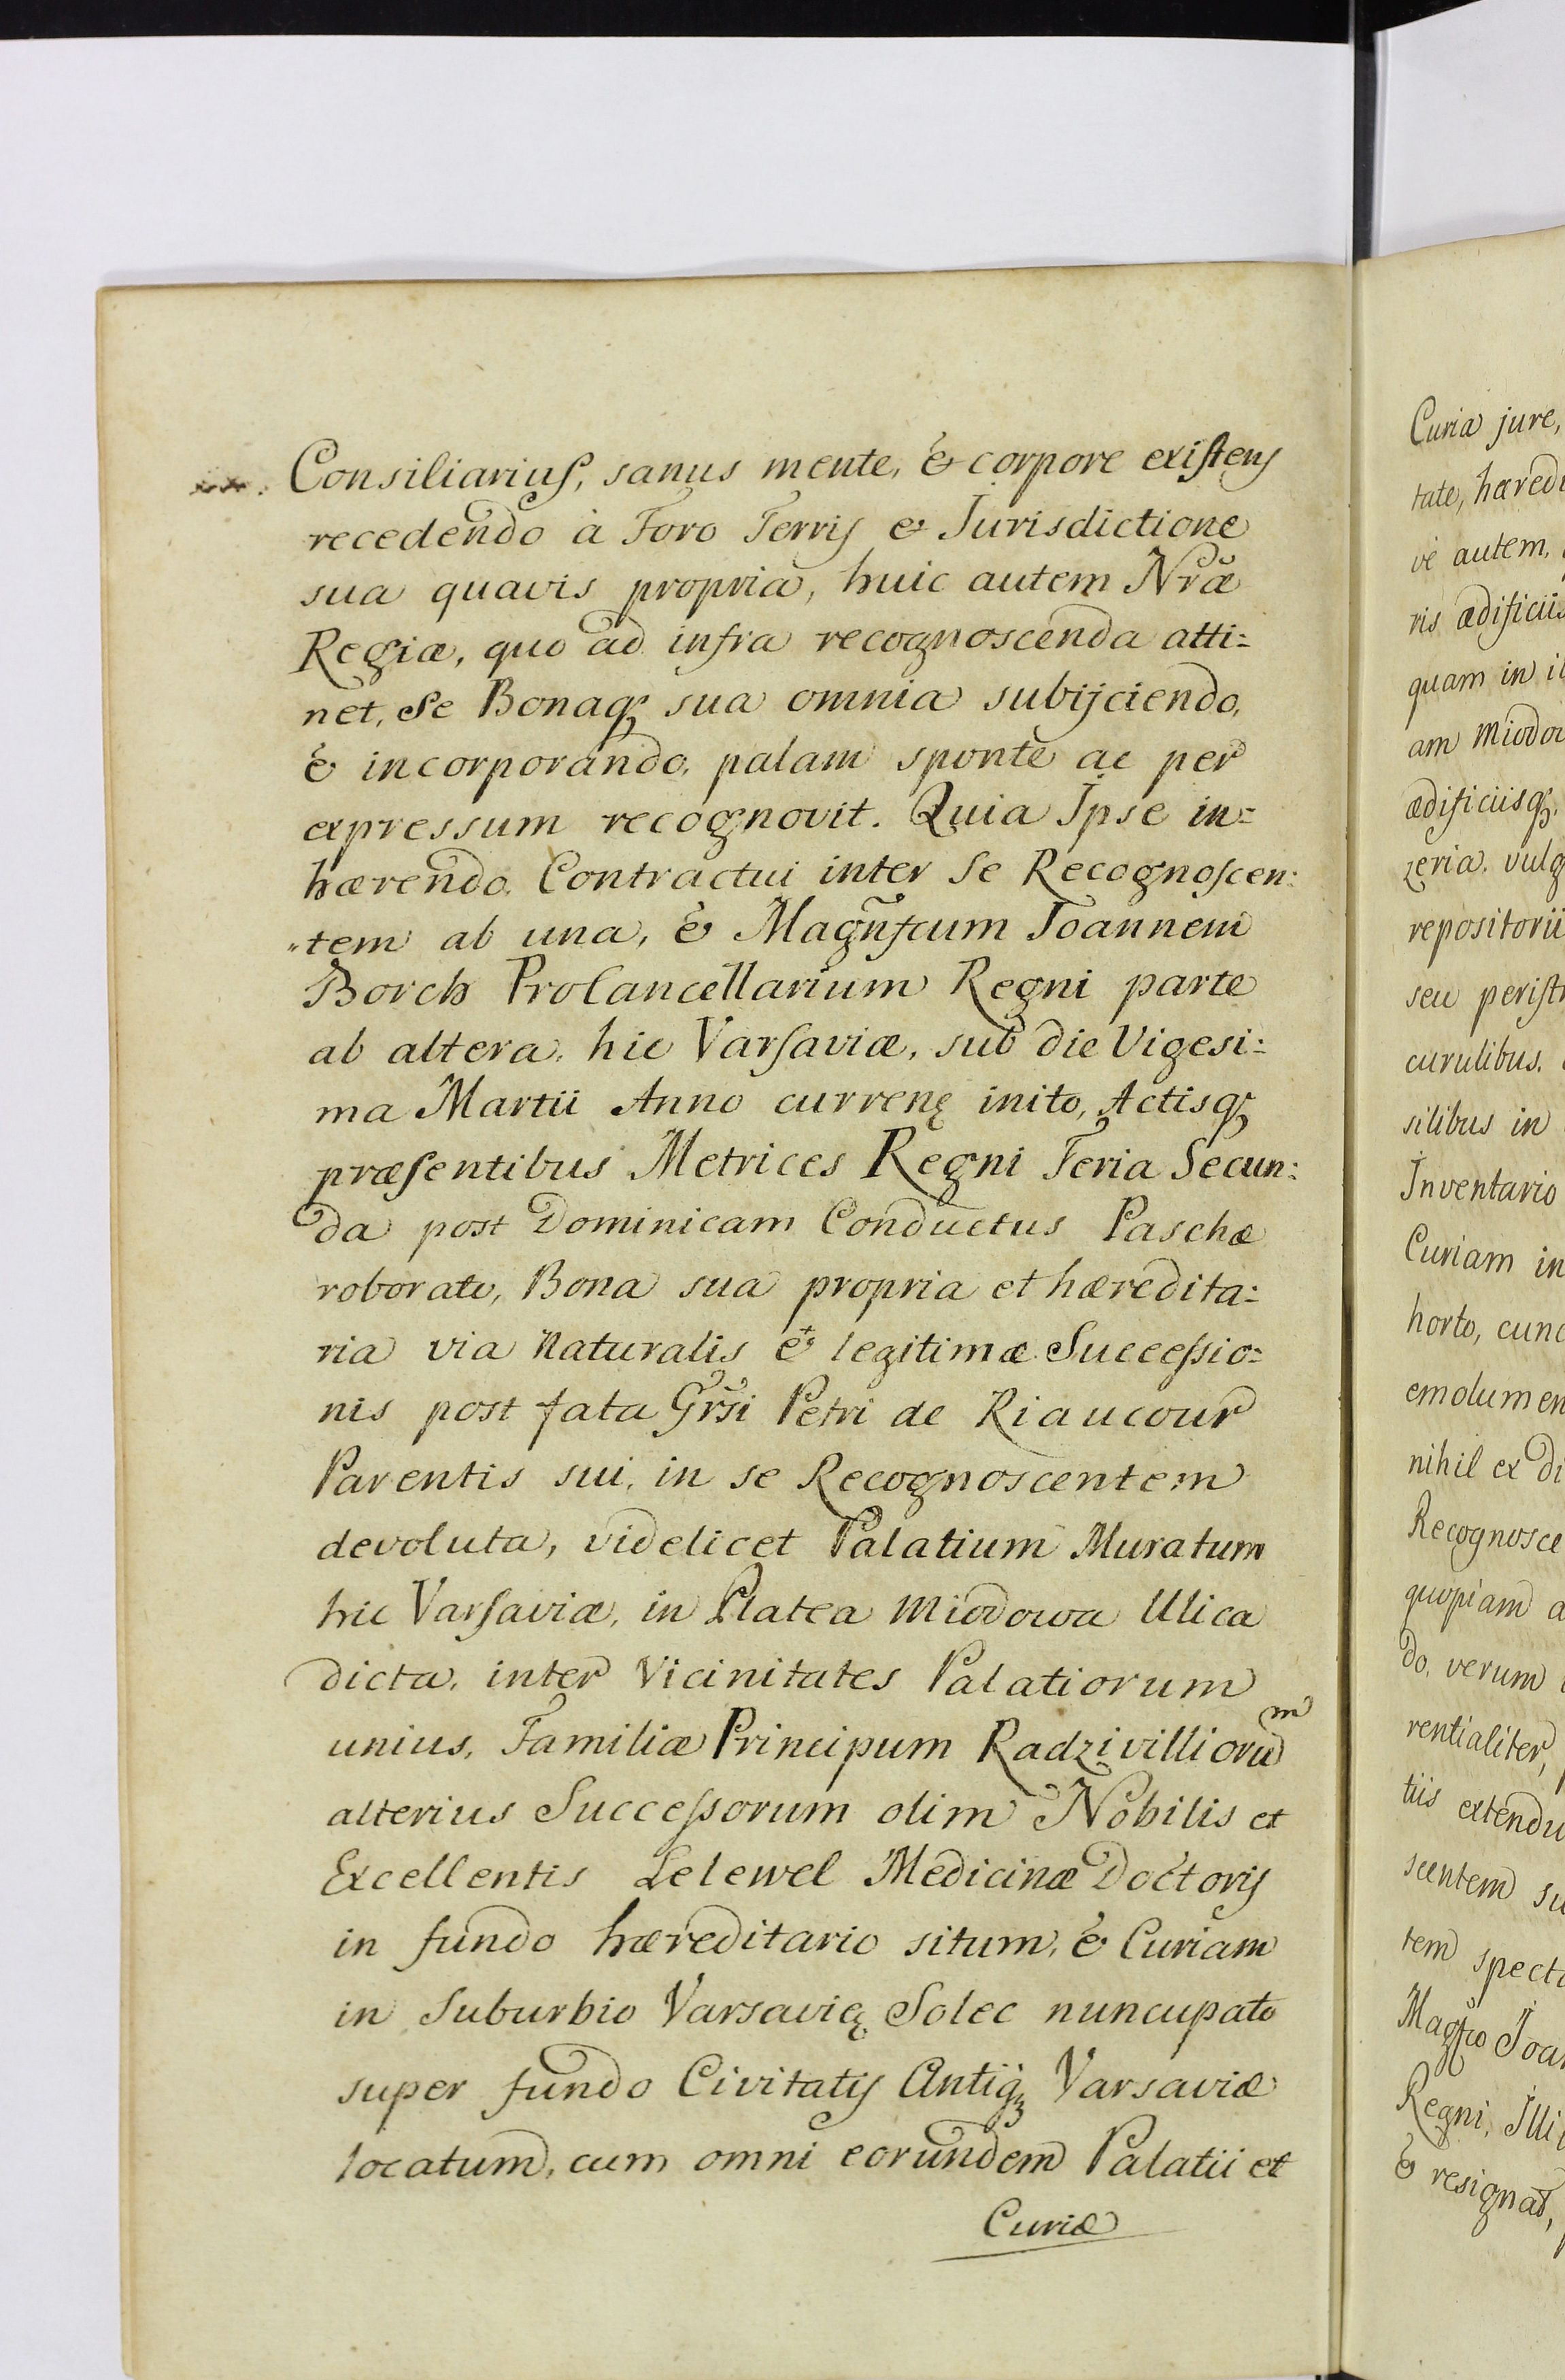 Consiliarius, sanus mente, & corpore existens
recedendo à Foro Terris & Jurisdictione
sua quavis propria, huic autem Nræ
Regiæ, quo ad infra recognoscenda atti=
net, Se Bonaq; sua omnia subijciendo,
& incorporando, palam sponte ac per
expressum recognovit. Quia Ipse in=
hærendo Contractui inter Se Recognoscen:
„tem ab una, & Magnficum Joannem
Borch ProCancellarium Regni parte
ab altera, hic Varsaviæ, sub die Vigesi:
ma Martii Anno currenę inito, Actisq;
præsentibus Metrices Regni Feria Secun:
da post Dominicam Conductus Paschæ
roborato, Bona sua propria et hæredita:
ria via naturalis & legitimæ Successio=
nis post fata Grsi Petri de Riaucour
Parentis sui, in se Recognoscentem
devoluta, videlicet Palatium Muratum
hic Varsaviæ, in Platea Miodowa Ulica
dicta, inter Vicinitates Palatiorum
unius, Familiæ Principum Radziwilliorum
alterius Successorum olim Nobilis et
Excellentis Lelewel Medicinæ Doctoris
in fundo hæreditario situm, & Curiam
in Suburbio Varsavię Solec nuncupato
super fundo Civitatis Antiq; Varsaviæ
locatum, cum omni eorundem Palatii et
Curiæ
Curia jure,
tate, hæredi
vè autem,
ris ædificiis
quam in il
am Miodo
ædificiisq;
zeria, vulg
repositorii
seu perist
curulibus,
silibus in
Inventario
Curiam in
horto, cunc
emolumen
nihil ex di
Recognosce
quopiam a
do, verum
rentialiter,
tiis extendu
scentem su
tem specta
Magfco Joan
Regni, Illi
& resignat,